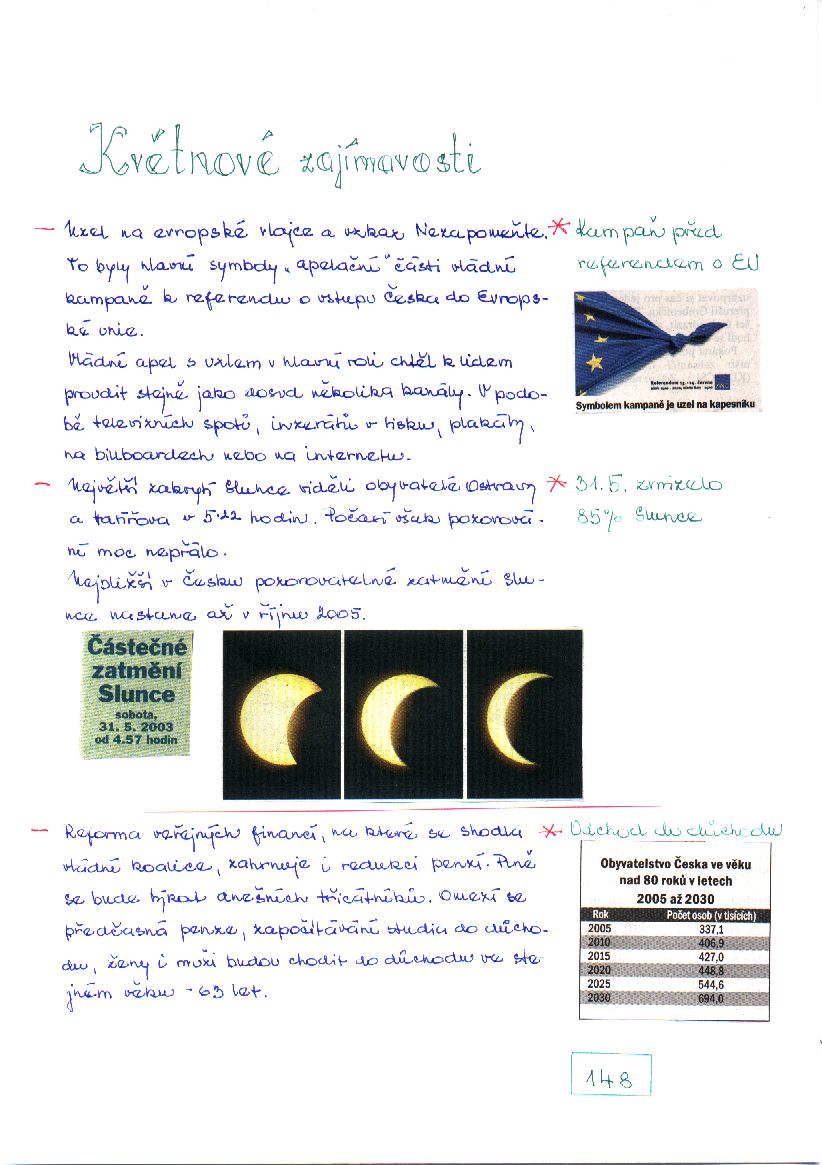 Květnové zajímavosti
– Uzel na evropské vlajce a vzkaz Nezapomeňte.
To byly hlavní symboly „apelační" části vládní
kampaně k referendu o vstupu Česka do Evrops-
ké unie.
Vládní apel s uzlem v hlavní roli chtěl k lidem
proudit stejně jako dosud několika kanály. V podo-
bě televizních spotů, inzerátů v tisku, plakátů,
na billboardech nebo na internetu.
* Kampaň před
referendem o EU
Referendum 13. - 14. června
Symbolem kampaně je uzel na kapesníku
– Největší zakrytí Slunce viděli obyvatelé Ostravy
a Karviné v 5.22 hodin. Počasí však pozorová-
ní moc nepřálo.
Nejbližší v Česku pozorovatelné zatmění Slu-
nce nastane až v říjnu 2005.
* 31.5. zmizelo
85% Slunce
Částečné
zatmění
Slunce
sobota,
31. 5. 2003
od 4.57 hodin
– Reforma veřejných financí, na které se shodla
vládní koalice, zahrnuje i redukci penzí. Plně
se bude týkat dnešních třicátníků. Omezí se
předčasná penze, započítávání studia do důcho-
du, ženy i muži budou chodit do důchodu ve ste
jném věku - 63 let.
* Odchod do důchodu
Obyvatelstvo Česka ve věku
nad 80 roků v letech
2005 až 2030
Rok Počet osob (v tisících)
2005 337,1
2010 406,9
2015 427,0
2020 448,8
2025 544,6
2030 694,0
148